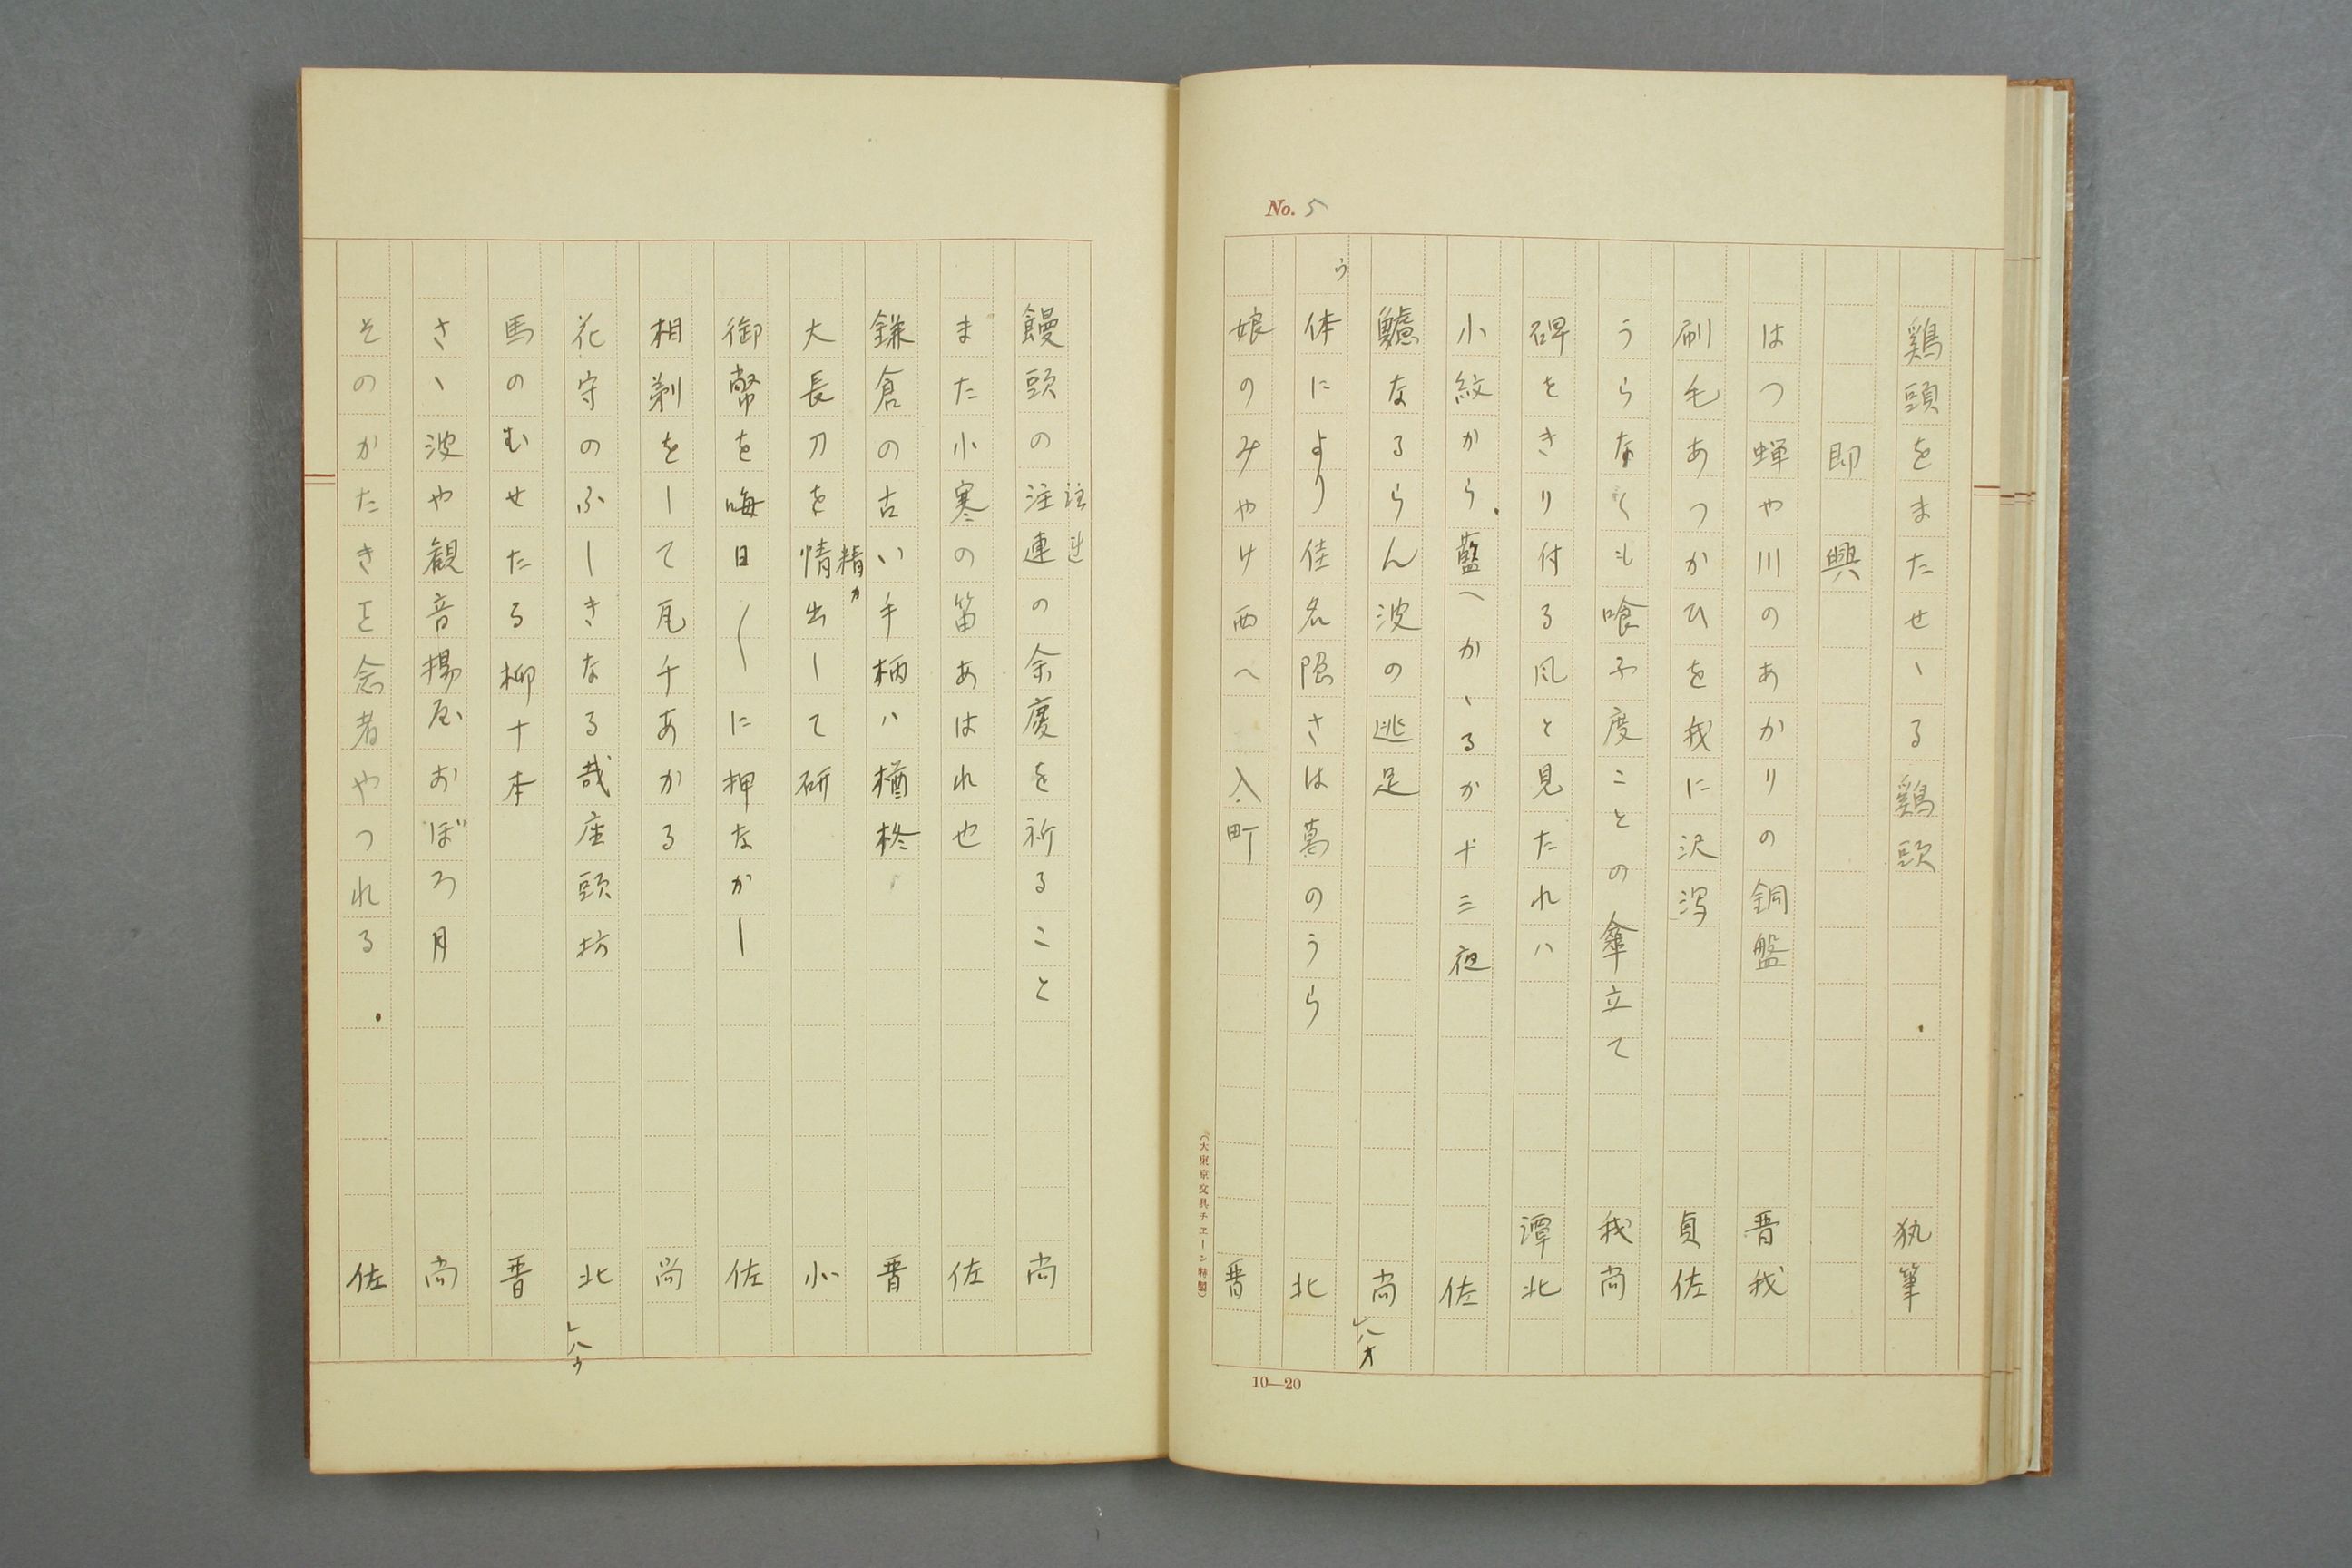 No. 5
鶏頭をまたせヽる鶏頭　執筆
即興
はつ蝉や川のあかりの銅盤　晋我
刷毛あつかひを我に沢瀉　貞佐
うらなくも喰ふ度ことの傘立て　我尚
碑をきり付る風と見たれハ　潭北
小紋から藍へかヽるか十三夜　佐
鱸なるらん波の逃足　尚
」八オ
ウ
体により佳名隠さは葛のうら　北
娘のみやけ西へ入町　晋
(大東京文具チエーン特製)
10—20
饅頭の注連の余慶を祈ること　尚
注連
また小寒の笛あはれ也　佐
鎌倉の古い手柄ハ楢柊　晋
大長刀を情出して研　小
精カ
御幣を晦日〱に押なかし　佐
相剃をして瓦千あかる　尚
花守のふしきなる哉座頭坊　北
」八ウ
馬のむせたる柳十本　晋
さヽ波や観音揚屋おぼろ月　尚
そのかたきを念者やつれる　佐